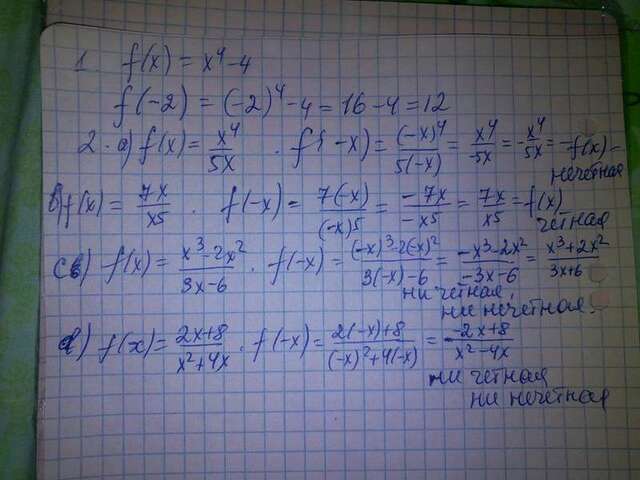 1 f(x) = x⁴ - 4
f(-2) = (-2)⁴ - 4 = 16 - 4 = 12
2. а) f(x) = x⁴/5x . f(-x) = (-x)⁴/5(-x) = x⁴/-5x = -x⁴/5x = -f(x) -
нечётная
в) f(x) = 7x/x5 . f(-x) = 7(-x)/(-x)5 = -7x/-x5 = 7x/x5 = f(x)
чётная
с) f(x) = x³-2x²/3x-6 . f(-x) = (-x)³-2(-x)²/3(-x)-6 = -x³-2x²/-3x-6 = x³+2x²/3x+6
ни чётная,
ни нечётная.
d) f(x) = 2x+8/x²+4x . f(-x) = 2(-x)+8/(-x)²+4(-x) = -2x+8/x²-4x
ни чётная
ни нечётная